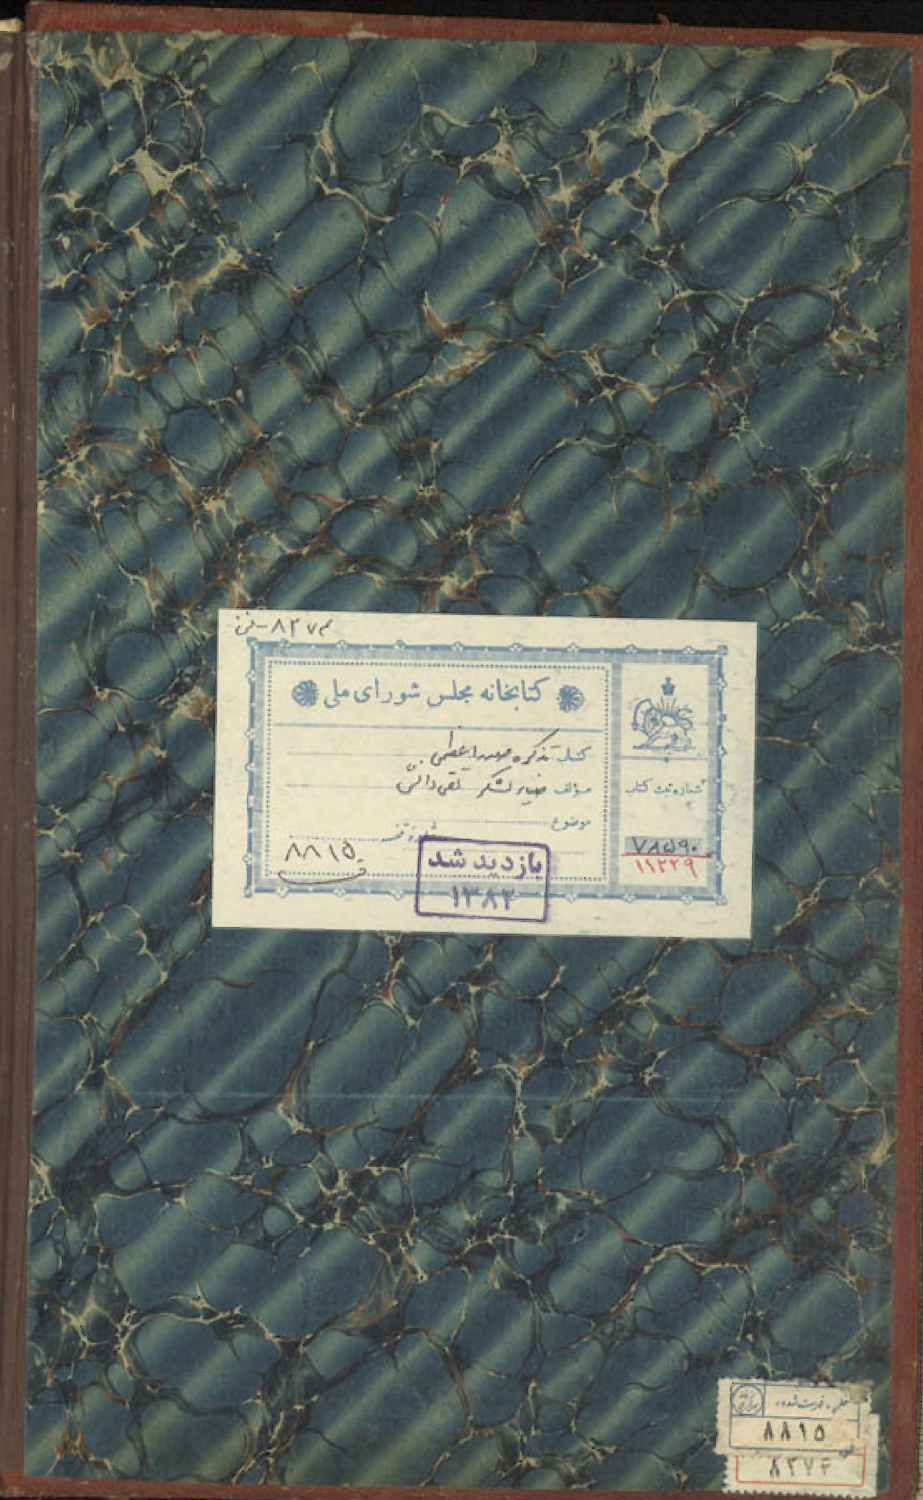 کتابخانه مجلس شورای ملی
کتاب تذکره صدر اعظمی
مؤلف ضیاء لشگر تقی دانش
موضوع
شماره قفسه
۸۸۱۵
شماره ثبت کتاب
۷۸۵۹۰
۱۱۲۲۹
بازدید شد
۱۳۸۲
خطی - فهرست شده
۸۸۱۵